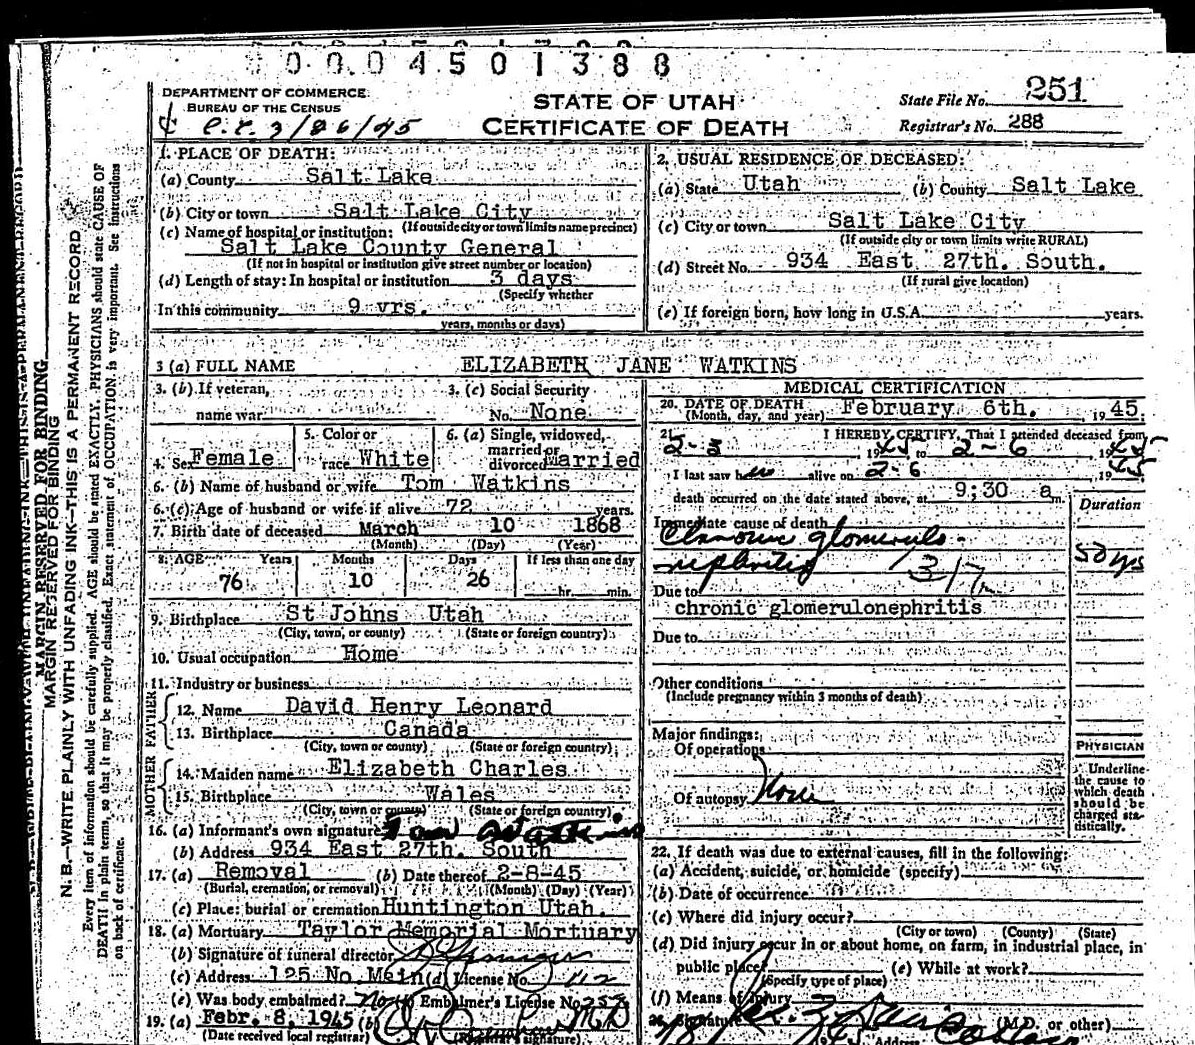 0004501388
DEPARTMENT OF COMMERCE
BUREAU OF THE CENSUS
3/26/45
STATE OF UTAH
CERTIFICATE OF DEATH
State File No. 251
Registrar's No. 288
1. PLACE OF DEATH:
(a) County Salt Lake
(b) City or town Salt Lake City
(If outside city or town limits name precinct)
(c) Name of hospital or institution:
Salt Lake County General
(If not in hospital or institution give street number or location)
(d) Length of stay: In hospital or institution 3 days
(Specify whether
In this community 9 yrs.
years, months or days)
2. USUAL RESIDENCE OF DECEASED:
(a) State Utah (b) County Salt Lake
(c) City or town Salt Lake City
(If outside city or town limits write RURAL)
(d) Street No. 934 East 27th. South.
(If rural give location)
(e) If foreign born, how long in U.S.A. years.
3 (a) FULL NAME ELIZABETH JANE WATKINS
3. (b) If veteran,
name war
3. (c) Social Security
No. None
4. Sex Female
5. Color or
race White
6. (a) Single, widowed,
married or
divorced Married
6. (b) Name of husband or wife Tom Watkins
6. (c) Age of husband or wife if alive 72 years.
7. Birth date of deceased March 10 1868
(Month) (Day) (Year)
8. AGE Years Months Days If less than one day
76 10 26 hr. min.
9. Birthplace St Johns Utah
(City, town, or county) (State or foreign country)
10. Usual occupation Home
11. Industry or business
FATHER
12. Name David Henry Leonard
13. Birthplace Canada
(City, town or county) (State or foreign country)
MOTHER
14. Maiden name Elizabeth Charles
15. Birthplace Wales
(City, town or county) (State or foreign country)
16. (a) Informant's own signature Tom Watkins
(b) Address 934 East 27th. South
17. (a) Removal (b) Date thereof 2-8-45
(Burial, cremation, or removal) (Month) (Day) (Year)
(c) Place: burial or cremation Huntington Utah.
18. (a) Mortuary Taylor Memorial Mortuary
(b) Signature of funeral director
(c) Address 125 No. Main (d) License No. 112
(e) Was body embalmed? No Embalmer's License No.
19. (a) Febr. 8, 1945 (b) MD
(Date received local registrar) (Registrar's signature)
MEDICAL CERTIFICATION
20. DATE OF DEATH
(Month, day, and year) February 6th. 1945.
21. I HEREBY CERTIFY, That I attended deceased from
2-3 1945 to 2-6 1945
I last saw her alive on 2-6 1945
death occurred on the date stated above, at 9;30 a m.
Duration
Immediate cause of death
Chronic glomerulo-
nephritis 50 yrs
Due to
chronic glomerulonephritis
Due to
Other conditions
(Include pregnancy within 3 months of death)
Major findings:
Of operations
Of autopsy None
PHYSICIAN
Underline
the cause to
which death
should be
charged sta-
tistically.
22. If death was due to external causes, fill in the following:
(a) Accident, suicide, or homicide (specify)
(b) Date of occurrence
(c) Where did injury occur?
(City or town) (County) (State)
(d) Did injury occur in or about home, on farm, in industrial place, in
public place? (e) While at work?
(Specify type of place)
(f) Means of Injury
Signature (M.D. or other)
Address
MARGIN RESERVED FOR BINDING
MARGIN RESERVED FOR BINDING
N. B.—WRITE PLAINLY WITH UNFADING INK—THIS IS A PERMANENT RECORD
Every item of information should be carefully supplied. AGE should be stated EXACTLY. PHYSICIANS should state CAUSE OF
DEATH in plain terms, so that it may be properly classified. Exact statement of OCCUPATION is very important. See instructions
on back of certificate.